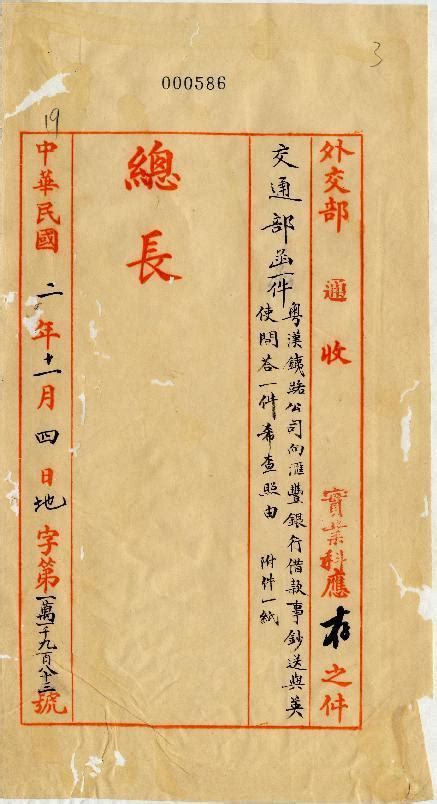 000586
3
19
外交部 通 收 實業科應 存 之件
交通部函一件 粵漢鐵路公司向滙豐銀行借款事鈔送與英
使問答一件希查照由 附件一紙
總長
中華民國 二年十一月 四日地字第一萬一千九百八十三號